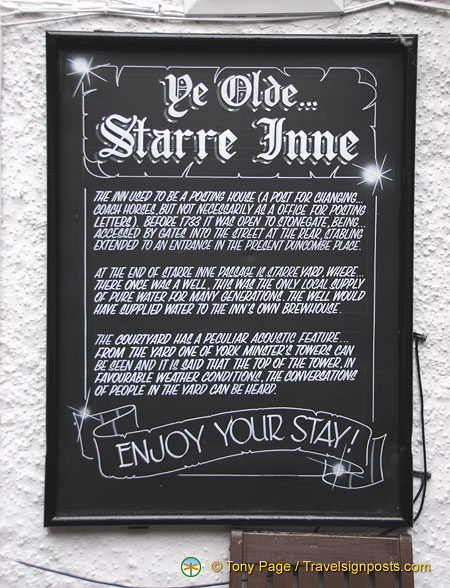 Ye Olde...
Starre Inne
THE INN USED TO BE A POSTING HOUSE (A POST FOR CHANGING...
COACH HORSES, BUT NOT NECESSARILY AS A OFFICE FOR POSTING
LETTERS). BEFORE 1733 IT WAS OPEN TO STONEGATE, BEING...
ACCESSED BY GATES INTO THE STREET AT THE REAR, STABLING
EXTENDED TO AN ENTRANCE IN THE PRESENT DUNCOMBE PLACE.
AT THE END OF STARRE INNE PASSAGE IS STARRE YARD, WHERE...
THERE ONCE WAS A WELL, THIS WAS THE ONLY LOCAL SUPPLY
OF PURE WATER FOR MANY GENERATIONS. THE WELL WOULD
HAVE SUPPLIED WATER TO THE INN'S OWN BREWHOUSE.
THE COURTYARD HAS A PECULIAR ACOUSTIC FEATURE...
FROM THE YARD ONE OF YORK MINSTER'S TOWERS CAN
BE SEEN AND IT IS SAID THAT THE TOP OF THE TOWER, IN
FAVOURABLE WEATHER CONDITIONS, THE CONVERSATIONS
OF PEOPLE IN THE YARD CAN BE HEARD.
ENJOY YOUR STAY!
© Tony Page / Travelsignposts.com